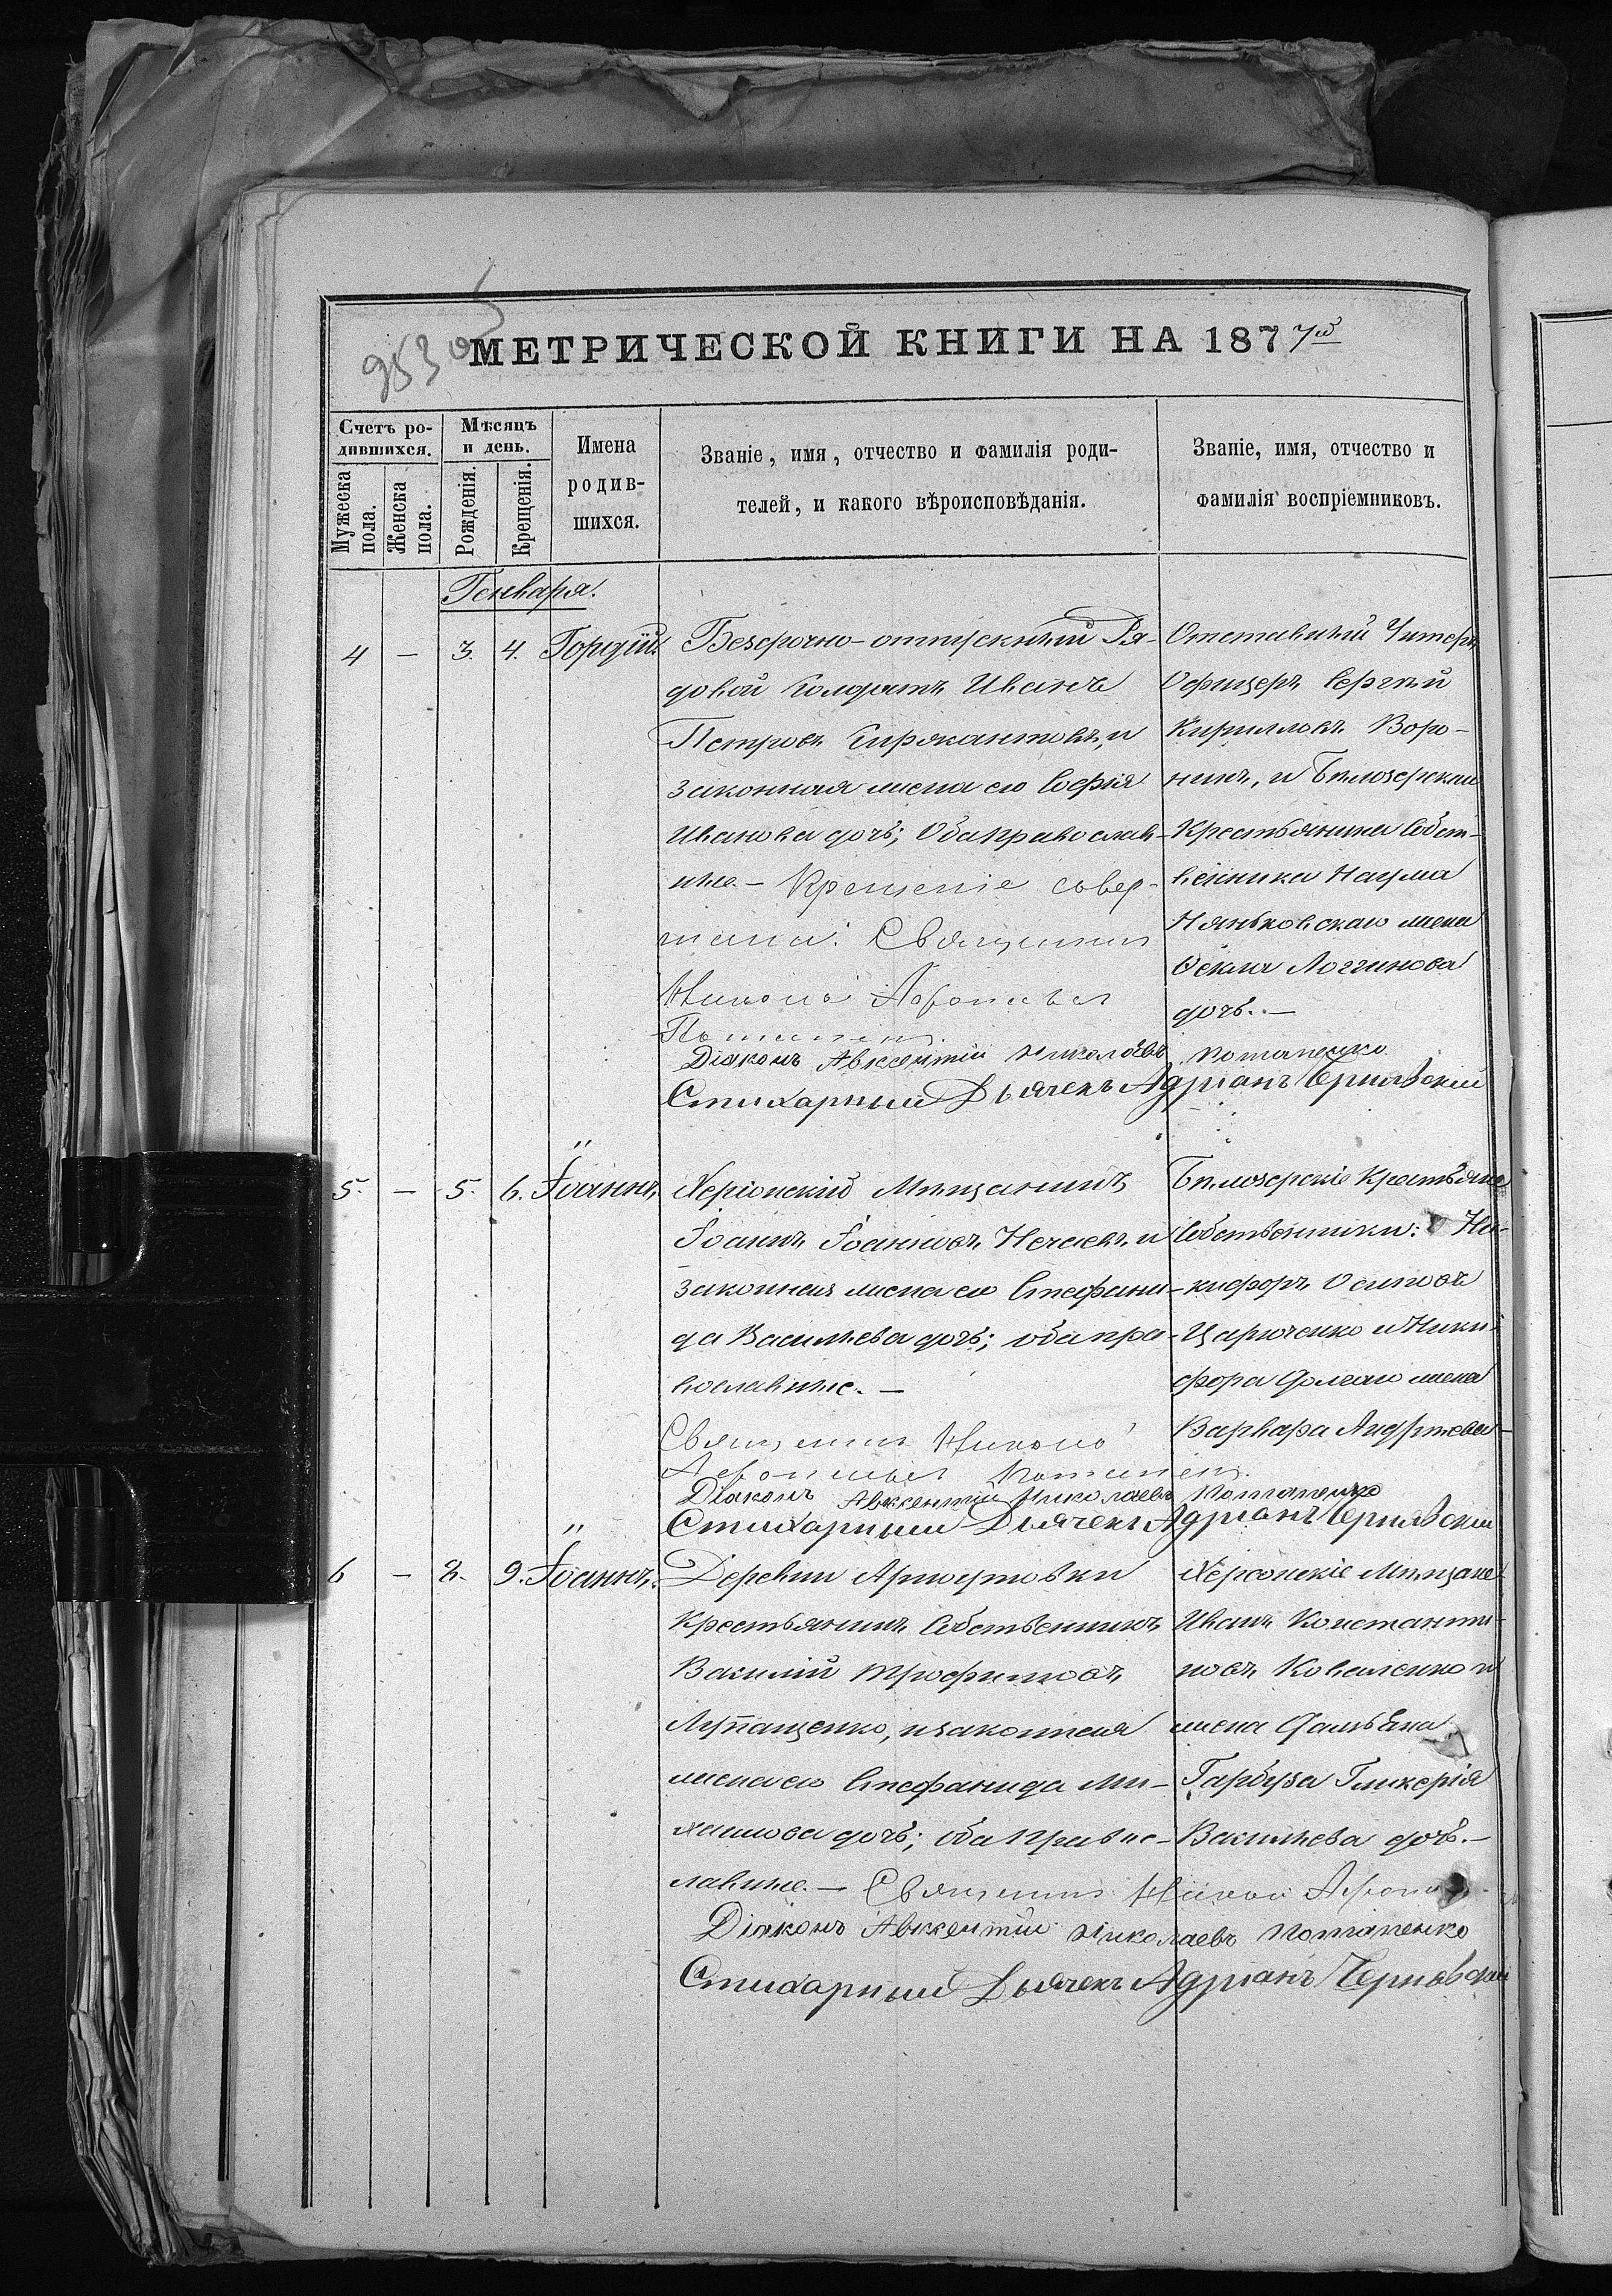 953 об
МЕТРИЧЕСКОЙ КНИГИ НА 1877й
Счетъ ро-
дившихся.
Мужеска пола.
Женска пола.
Мѣсяцъ
и день.
Рожденія.
Крещенія.
Имена
родив-
шихся.
Званіе, имя, отчество и фамилія роди-
телей, и какого вѣроисповѣданія.
Званіе, имя, отчество и
фамилія воспріемниковъ.
Генваря.
4 — 3. 4. Гордій.
Безсрочно-отпускный Ря-
довой Солдатъ Иванъ
Петровъ и
законная жена его Софія
Иванова дочь; Оба православ-
ные. — Крещеніе совер-
шали: Священникъ
Николай Афонасьев
Потапенко
Діаконъ Авксентій Николаевъ Потапенко
Стихарный Дьячекъ Адріанъ Чернявскій
Отставный Унтеръ
Офицеръ Сергѣй
Кирилловъ Воро-
нинъ, и Бѣлозерскаго
Крестьянина Собст-
венника Наума
Няньковскаго жена
Ѳекла Логгинова
дочь. —
5. — 5. 6. Іоаннъ,
Херсонскій Мѣщанинъ
Іоаннъ Іоанновъ Нечаевъ и
законная жена его Стефани-
да Васильева дочь; оба пра-
вославные. —
Священник Николай
Афонасьев Потапенко
Діаконъ Авксентій Николаевъ Потапенко
Стихарный Дьячекъ Адріанъ Чернявский
Бѣлозерскіе Крестьяне
Собственники: Ни-
кифоръ Осиповъ
Царюченко и Ники-
фора жена
Варвара Андреева
6 — 8. 9. Іоаннъ.
Деревни
Крестьянинъ Собственникъ
Василій Трофимовъ
Лупащенко, и законная
жена его Стефанида Ми-
хаилова дочь; Оба Право-
славные. — Священник Николай Афонас
Діаконъ Авксентій Николаевъ Потапенко
Стихарный Дьячекъ Адріанъ Чернявский
Херсонскіе Мѣщане
Иванъ Константи-
новъ Коваленко и
жена Даміана
Гарбуза Гликерія
Васильева дочь. —